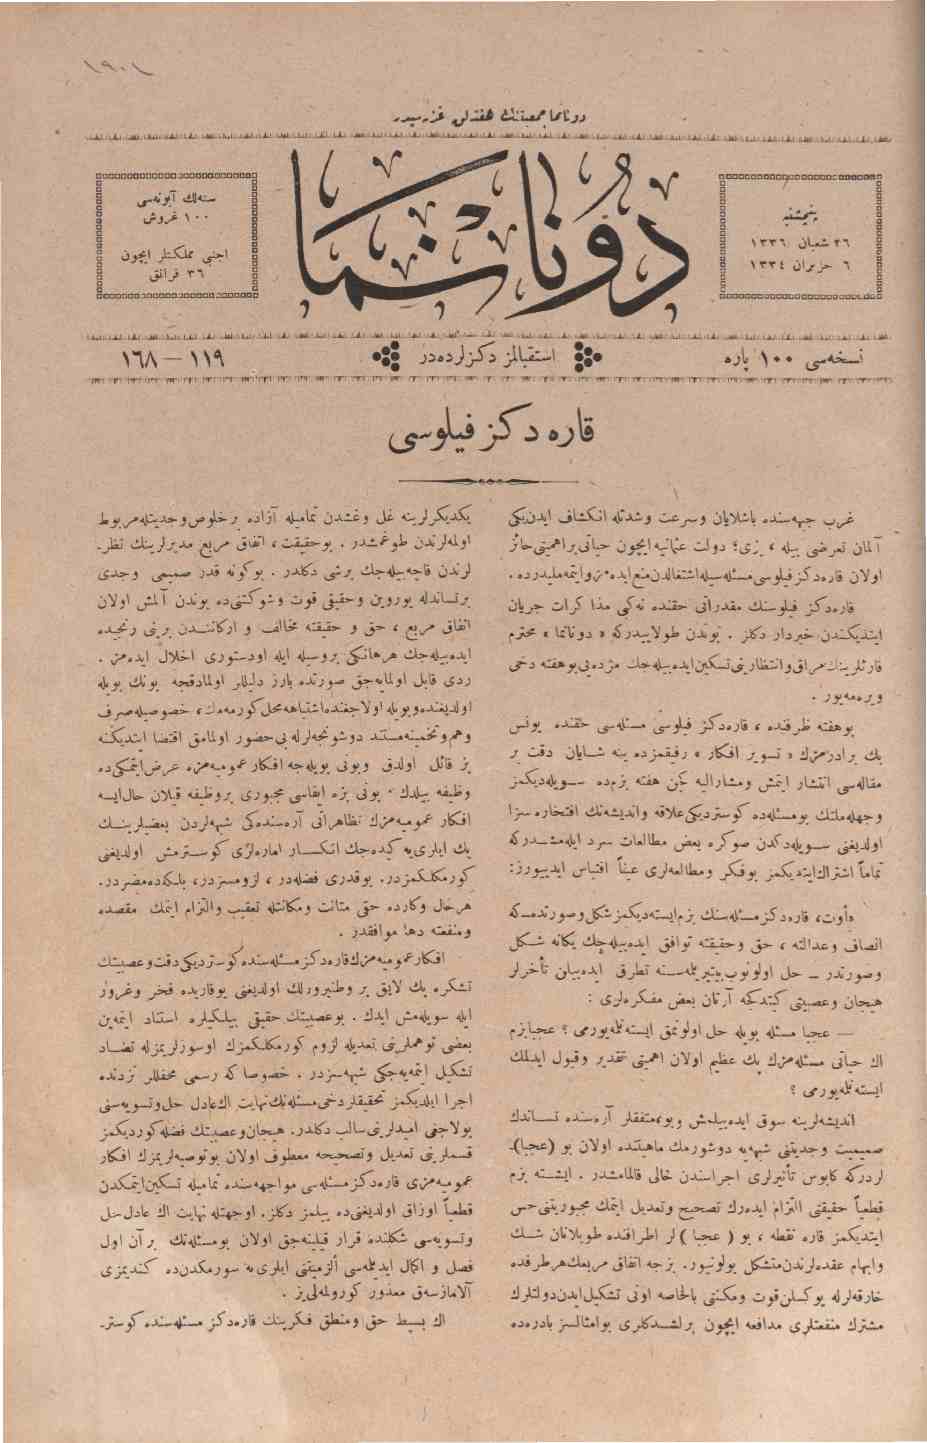 ١٩٠١
دونانما جمعيتنك هفته‌لق غزته‌سيدر
پنجشنبه
٢٦ شعبان ١٣٣٦
٦ حزيران ١٣٣٤
دونانما
سنه‌لك آبونه‌سى
١٠٠ غروش
اجنبى مملكتلر ايچون
٣٦ فرانق
نسخه‌سى ١٠٠ پاره
استقبالمز دكزلرده‌در
١١٩ — ١٦٨
قاره دكز فيلوسى
غرب جبهه‌سنده باشلايان وسرعت وشدتله انكشاف ايدن‌يكى
آلمان تعرضى بيله ، بزى؛ دولت عثمانيه ايچون حياتى براهميتى حائز
اولان قاره‌دكز فيلوسى مسئله‌سيله اشتغالدن منع ايده‌مز وايتمه‌مليدرده.
قاره‌دكز فيلوسنك مقدراتى حقنده نه‌كى مذا كرات جريان
ايتديكندن خبردار دكلز . بوندن طولاييدركه « دونانما » محترم
قارئلرينك مراق وانتظارينى تسكين ايده‌بيله‌جك مژده‌يى بو هفته دخى
ويره‌مه‌يور .
بو هفته ظرفنده ، قاره‌دكز فيلوسى مسئله‌سى حقنده يونس
بك برادرمزك « تصوير افكار » رفيقمزده ينه شايان دقت بر
مقاله‌سى انتشار ايتمش ومشاراليه كچن هفته بزم‌ده سويله‌ديكمز
وجهله ملتك بومسئله‌ده كوستردیكى علاقه وانديشه‌نك افتخاره سزا
اولديغنى سويله‌دكدن صوكره بعض مطالعات سرد ايله‌مشدركه
تماماً اشتراك ايتديكمز بوفكر ومطالعه‌لرى عيناً اقتباس ايدييورز:
«أوت، قاره‌دكز مسئله‌سنك بزم ايسته‌ديكمز شكل وصورتده‌كه
انصاف وعدالته ، حق وحقيقته توافق ايده‌بيله‌جك يكانه شكل
وصورتدر – حل اولونوب بيتيريلمه‌سنه تطرق ايده‌بيلن تأخرلر
هيجان وعصبيتى كيتدكجه آرتان بعض مفكره‌لرى :
— عجبا مسئله بويله حل اولونمق ايسته‌نلمه‌يورمى ؟ عجبا بزم
اك حياتى مسئله‌مزك پك عظيم اولان اهميتى تقدير وقبول ايدلمك
ايسته‌نلمه‌يورمى ؟
انديشه‌لرينه سوق ايده‌بيلمش وبو، متفقلر آره‌سنده تساندك
صميميت وجديتنى شبهه‌يه دوشورمك ماهيتنده اولان بو (عجبا)-
لردركه كابوس تأثيرلرى اجراسندن خالى قالمامشدر . ايشته بزم
قطعياً حقيقتى التزام ايده‌رك تصحيح وتعديل ايتمك مجبوريتنى حس
ايتديكمز قاره نقطه ، بو ( عجبا ) لر اطرافنده طوپلانان شك
وابهام عقده‌لرندن متشكل بولونيور. بزجه اتفاق مربعك هر طرفده
خارقه‌لرله يوكسلن قوت ومكنتى بالخاصه اونى تشكيل ايدن دولتلرك
مشترك منفعتلرى مدافعه ايچون برلشدكلرى بو امثالسز بادره‌ده
يكديكرلرينه غل وغشدن تماميله آزاده بر خلوص وجديتله مربوط
اولمه‌لرندن طوغمشدر . بوحقيقت، اتفاق مربع مدبرلرينك نظر-
لرندن قاچه‌بيله‌جك برشى دكلدر . بوكونه قدر صميمى وجدى
برتساندله يوروين وحقيقى قوت وشوكتنى‌ده بوندن آلمش اولان
اتفاق مربع ، حق و حقيقته مخالف و اركانندن برينى رنجيده
ايده‌بيله‌جك هرهانكى بروسيله ايله اودستورى اخلال ايده‌مز .
ردى قابل اولمايه‌جق صورتده بارز دليللر اولمادقجه بونك بويله
اولديغنده وبويله اولاجغنده اشتباهه محل كورمه‌مك، خصوصيله صرف
وهم وتخمينه مستند دوشونجه‌لرله بى‌حضور اولمامق اقتضا ايتديكنه
بز قائل اولدق وبونى بويله‌جه افكار عموميه‌مزه عرض ايتمكى‌ده
وظيفه بيلدك. بونى بزه ايفاسى مجبورى بروظيفه قيلان حال ايسه
افكار عموميه‌مزك تظاهراتى آره‌سنده‌كى شبهه‌لردن بعضيلرينك
پك ايلرى‌يه كيده‌جك انكسار اماره‌لرى كوسترمش اولديغنى
كورمكلكمزدر. بوقدرى فضله‌در ، لزومسزدر، بلكه‌ده مضردر.
هر حال وكارده حقى متانت ومكانتله تعقيب والتزام ايتمك مقصده
ومنفعته دها موافقدر .
افكار عموميه‌مزك قاره‌دكز مسئله‌سنده كوستردیكى دقت وعصبيتك
تشكره پك لايق بر وطنپرورلك اولديغنى يوقاريده فخر وغرور
ايله سويله‌مش ايدك . بوعصبيتك حقيقى بيلكيلره استناد ايتمه‌ين
بعضى توهملرينى تعديله لزوم كورمكلكمزك اوسوزلريمزله تضاد
تشكيل ايتمه‌يه‌جكى شبهه‌سزدر . خصوصا كه رسمى محفللر نزدنده
اجرا ايلديكمز تحقيقلردخى مسئله‌نك نهايت اك عادل حل وتسويه‌سنى
بولاجغى اميدلرينى سالب دكلدر. هيجان وعصبيتك فضله كورديكمز
قسملرينى تعديل وتصحيحه معطوف اولان بو توصيه‌لريمزك افكار
عموميه‌مزى قاره‌دكز مسئله‌سى مواجهه‌سنده تماميله تسكين ايتمكدن
قطعياً اوزاق اولديغنى‌ده بيلمز دكلز. اوجهتله نهايت اك عادل حل
وتسويه‌سى شكلنده قرار قيلينه‌جق اولان بومسئله‌نك بر آن اول
فصل و اكمال ايديلمه‌سى ألزميتنى ايلرى‌يه سورمكدن‌ده كنديمزى
آلامازسه‌ق معذور كورولمه‌لى‌يز .
اك بسيط حق ومنطق فكرينك قاره‌دكز مسئله‌سنده كوستر-